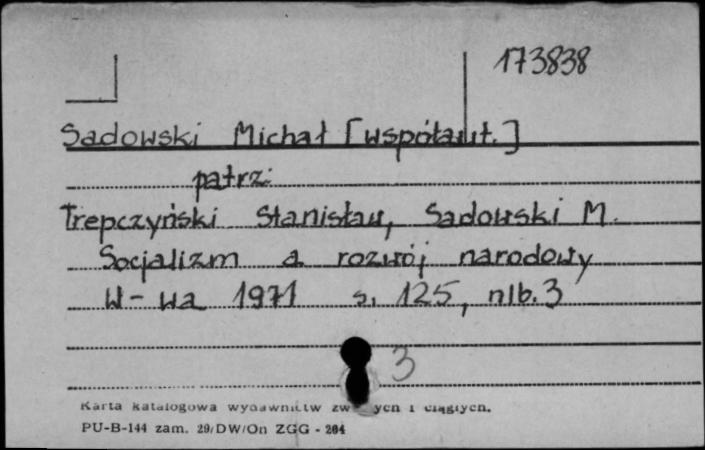 173838
Sadowski Michał [współaut.]
patrz:
Trepczyński Stanisław, Sadowski M.
Socjalizm a rozwój narodowy
W-wa 1971 s. 125, nlb. 3
3
Karta katalogowa wydawnictw i ciągłych.
PU-B-144 zam. 29/DW/On ZGG - 264